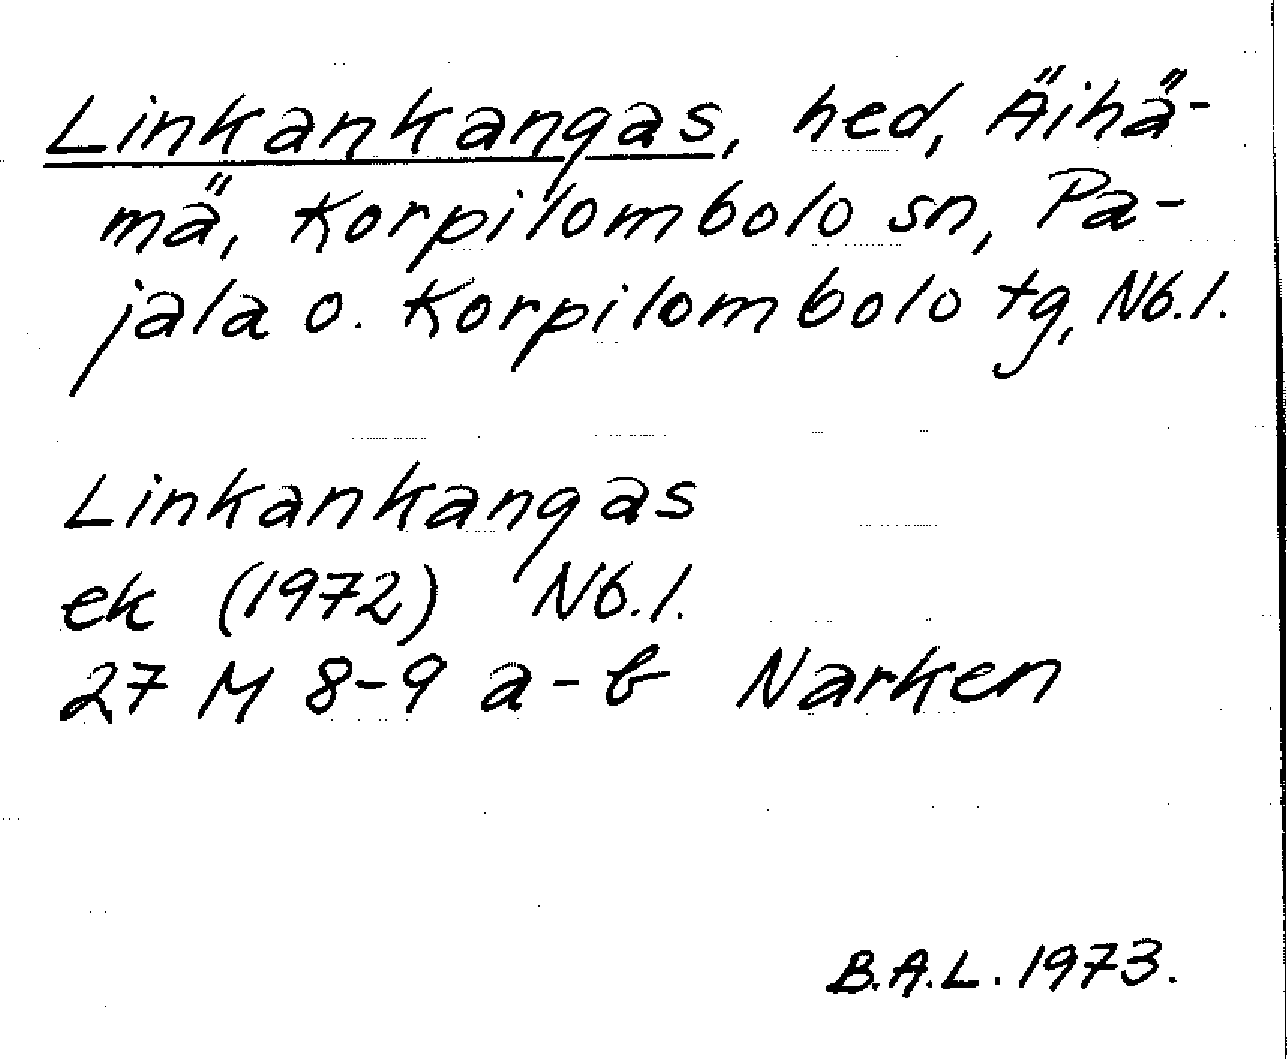 Linkankangas, hed, Äihä-
mä, Korpilombolo sn, Pa-
jala o. Korpilombolo tg, Nb.l.
Linkankangas
ek (1972) Nb.l.
27 M 8-9 a-b Narken
B.A.L. 1973.